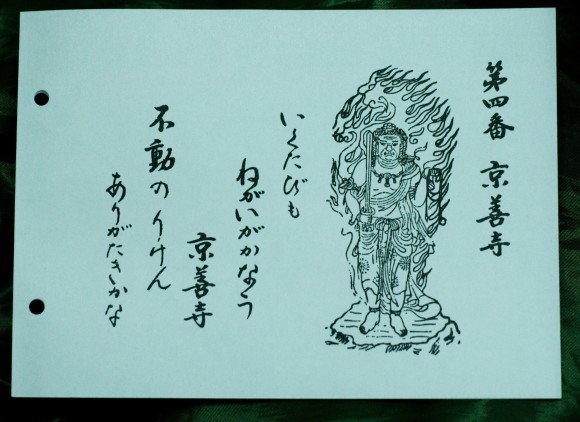 第四番 京善寺
いくたびも
ねがいがかなう
京善寺
不動のりけん
ありがたきかな